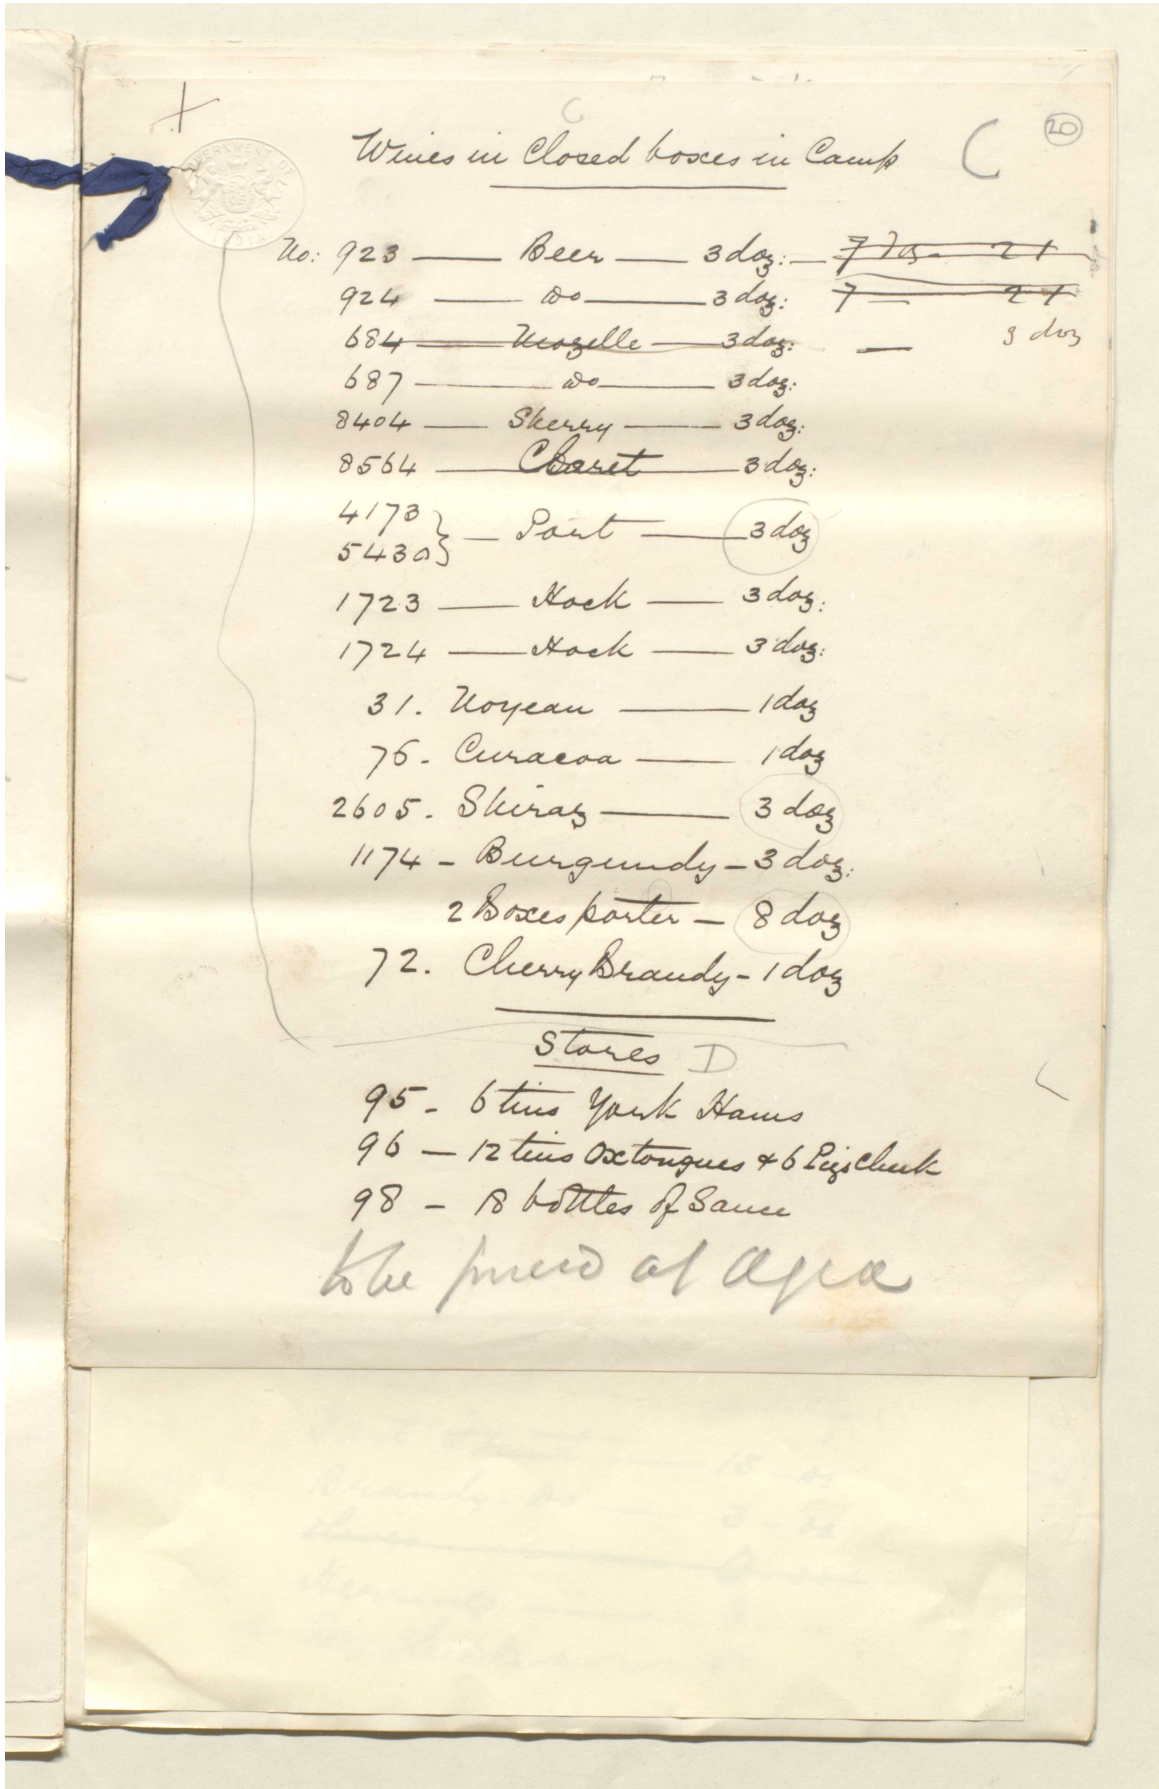 C
20
Wines in Closed boxes in Camp C
No: 923 — Beer — 3 doz: — 7 doz. 21
924 — do — 3 doz: 7 — 21
684 — Mozelle — 3 doz: — 3 doz
687 — do — 3 doz:
8404 — Sherry — 3 doz:
8564 — Claret — 3 doz:
4173
5430 } — Port — 3 doz
1723 — Hock — 3 doz:
1724 — Hock — 3 doz:
31. Noyeau — 1 doz
76. Curacoa — 1 doz
2605. Shiraz — 3 doz
1174 - Burgundy - 3 doz:
2 Boxes porter - 8 doz
72. Cherry Brandy - 1 doz
Stores D
95 - 6 tins York Hams
96 - 12 tins Ox tongues & 6 Pigs Cheek
98 - 18 bottles of Sauce
to be priced at Agra